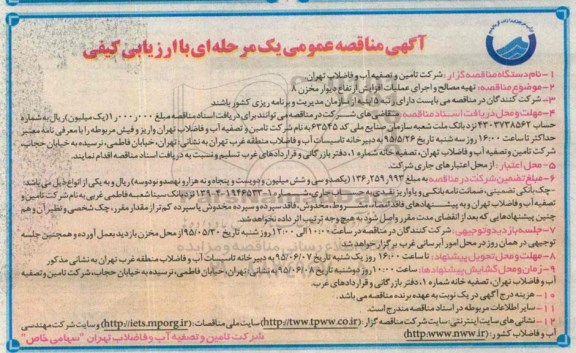 آگهی مناقصه عمومی یک مرحله ای با ارزیابی کیفی
۱- نام دستگاه مناقصه گزار: شرکت تامین و تصفیه آب و فاضلاب تهران
۲- موضوع مناقصه: تهیه مصالح و اجرای عملیات افزایش ارتفاع دیوار مخزن ۸
۳- شرکت کنندگان در مناقصه می بایست دارای رتبه ۵ ابنیه از سازمان مدیریت و برنامه ریزی کشور باشند
۴- مهلت و محل دریافت اسناد مناقصه: متقاضی های شرکت در مناقصه می توانند برای دریافت اسناد مناقصه مبلغ ۱,۰۰۰,۰۰۰ (یک میلیون) ریال به شماره
حساب ۴۳۰۳۷۳۸۵۶۳ نزد بانک ملت شعبه سازمان صنایع ملی کد ۶۳۵۴۵ به نام شرکت تامین و تصفیه آب و فاضلاب تهران واریز و فیش مربوطه را با معرفی نامه معتبر
حداکثر تا ساعت ۱۶:۰۰ روز سه شنبه تاریخ ۹۵/۵/۲۶ به دبیرخانه تاسیسات آب و فاضلاب منطقه غرب تهران به نشانی: تهران، خیابان فاطمی، نرسیده به خیابان حجاب،
شرکت تامین و تصفیه آب و فاضلاب تهران، تصفیه خانه شماره ۱، دفتر بازرگانی و قراردادهای غرب تسلیم و نسبت به دریافت اسناد مناقصه اقدام نمایند.
۵- محل اعتبار: از محل اعتبارهای جاری شرکت.
۶- مبلغ تضمین شرکت در مناقصه به مبلغ ۱۳۶,۲۵۹,۹۹۳ (یکصد و سی و شش میلیون و دویست و پنجاه و نه هزار و نهصد و نود و سه) ریال و به یکی از انواع ذیل می باشد:
-چک بانکی تضمینی، ضمانت نامه بانکی و یا واریز نقدی به حساب جاری شماره نزد بانک سینا شعبه فاطمی غربی به نام شرکت تامین و
تصفیه آب و فاضلاب تهران و به پیشنهادهای فاقد امضاء، مشروط، مخدوش، فاقد سپرده و سپرده مخدوش یا سپرده کمتر از مقدار مقرر، چک شخصی و نظیر آن و هم
چنین پیشنهادهایی که بعد از انقضای مدت مقرر واصل شود به هیچ وجه ترتیب اثر داده نخواهد شد.
۷- جلسه بازدید و توجیهی: شرکت کنندگان در مناقصه در ساعت ۱۰:۰۰ الی ۱۲:۰۰ روز شنبه تاریخ ۹۵/۰۵/۳۰ از محل مخزن بازدید بعمل آورده و همچنین جلسه
توجیهی در همان روز در محل امور آبرسانی غرب برگزار خواهد شد
۸- مهلت و محل تحویل پیشنهاد: تا ساعت ۱۶:۰۰ روز یک شنبه تاریخ ۹۵/۰۶/۰۷ به دبیرخانه تاسیسات آب و فاضلاب منطقه غرب تهران به نشانی مذکور
۹- زمان و محل گشایش پیشنهادها: ساعت ۱۰:۰۰ روز دوشنبه تاریخ ۹۵/۰۶/۰۸ به نشانی تهران، خیابان فاطمی، نرسیده به خیابان حجاب، شرکت تامین و تصفیه
آب و فاضلاب تهران، تصفیه خانه شماره ۱، دفتر بازرگانی و قراردادهای غرب.
۱۰- هزینه درج آگهی در یک نوبت به عهده برنده مناقصه می باشد.
۱۱- سایر اطلاعات مربوطه در اسناد مناقصه مندرج است.
۱۲- نشانی های سایت اینترنتی: سایت شرکت مناقصه گزار: (http://tww.tpww.co.ir) سایت ملی مناقصات: (http://iets.mporg.ir) و سایت شرکت مهندسی
آب و فاضلاب کشور: (http:www.nww.ir)
شرکت تامین و تصفیه آب و فاضلاب تهران "سهامی خاص"